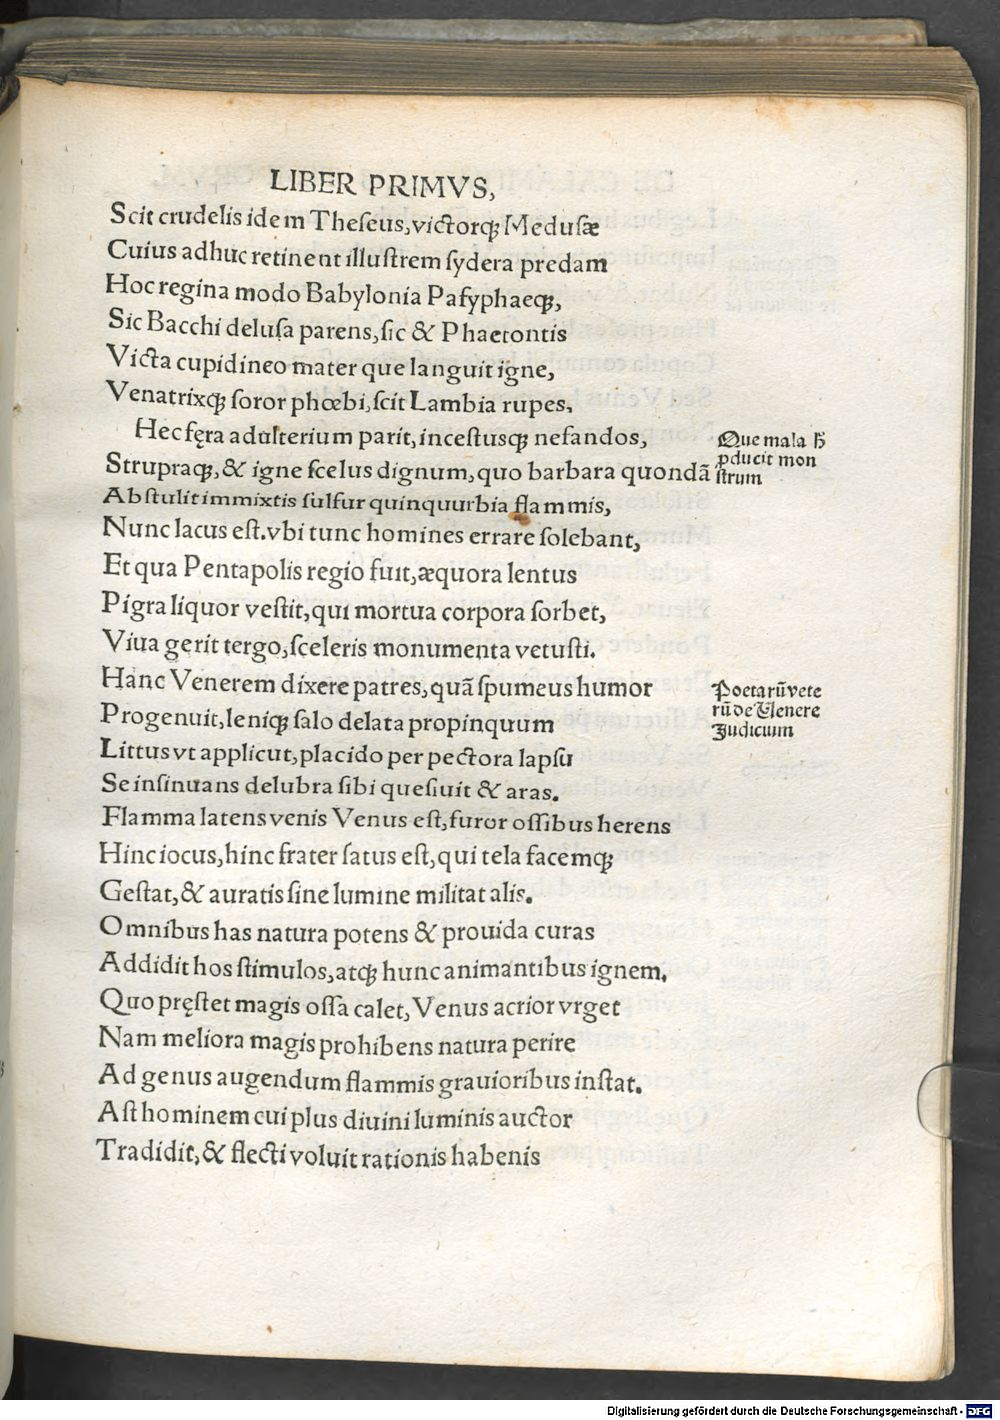 LIBER PRIMVS,
Scit crudelis idem Theſeus, victorqꝫ Meduſæ
Cuius adhuc retinent illuſtrem ſydera predam
Hoc regina modo Babylonia Paſyphaeqꝫ,
Sic Bacchi deluſa parens, ſic & Phaetontis
Victa cupidineo mater que languit igne,
Venatrixqꝫ ſoror phœbi, ſcit Lambia rupes,
Hec fęra adulterium parit, inceſtusqꝫ nefandos,
Que mala hͦ
ꝓducit mon
ſtrum
Strupraqꝫ, & igne ſcelus dignum, quo barbara quondã
Abſtulit immixtis ſulfur quinquurbia flammis,
Nunc lacus eſt. vbi tunc homines errare ſolebant,
Et qua Pentapolis regio fuit, æquora lentus
Pigra liquor veſtit, qui mortua corpora ſorbet,
Viua gerit tergo, ſceleris monumenta vetuſti.
Hanc Venerem dixere patres, quã ſpumeus humor
Poetarũ vete
rũ de Venere
Judicium
Progenuit, leniqꝫ ſalo delata propinquum
Littus vt applicut, placido per pectora lapſu
Se inſinuans delubra ſibi queſiuit & aras.
Flamma latens venis Venus eſt, furor oſſibus herens
Hinc iocus, hinc frater ſatus eſt, qui tela facemqꝫ
Geſtat, & auratis ſine lumine militat alis.
Omnibus has natura potens & prouida curas
Addidit hos ſtimulos, atqꝫ hunc animantibus ignem.
Quo pręſtet magis oſſa calet, Venus acrior vrget
Nam meliora magis prohibens natura perire
Ad genus augendum flammis grauioribus inſtat.
Aſt hominem cui plus diuini luminis auctor
Tradidit, & flecti voluit rationis habenis
Digitalisierung gefördert durch die Deutsche Forschungsgemeinschaft - DFG